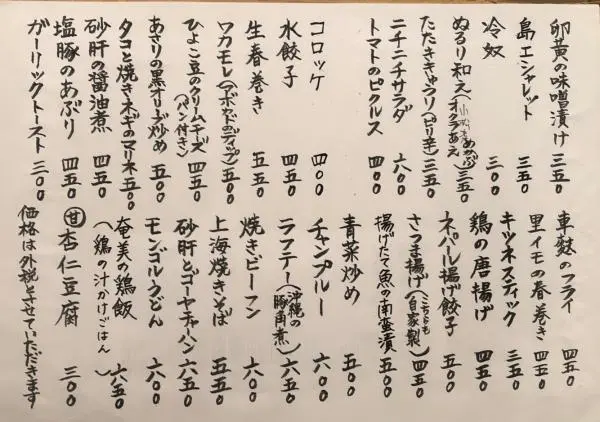 卵黄の味噌漬け 三五〇
島エシャレット 三五〇
冷奴 三〇〇
ぬるり和え(オクラ 小松菜 めかぶ あえ) 三五〇
たたききゅうり(ピリ辛) 三五〇
ニチニチサラダ 六〇〇
トマトのピクルス 四〇〇
コロッケ 四〇〇
水餃子 四五〇
生春巻き 五五〇
ワカモレ(アボカドのディップ) 五〇〇
ひよこ豆のクリームチーズ(パン付き) 四五〇
あさりの黒オリーブ炒め 五〇〇
タコと焼きネギのマリネ 五五〇
砂肝の醤油煮 四五〇
塩豚のあぶり 四五〇
ガーリックトースト 三〇〇
車麩のフライ 四五〇
里イモの春巻き 四五〇
キツネスティック 三五〇
鶏の唐揚げ 四五〇
ネパール揚げ餃子 五〇〇
さつま揚げ(こちらも自家製) 四五〇
揚げたて魚の南蛮漬 五五〇
青菜炒め 五〇〇
チャンプルー 六〇〇
ラフテー(沖縄の豚角煮) 六五〇
焼きビーフン 六〇〇
上海焼きそば 五五〇
砂肝とゴーヤチャーハン 六五〇
モンゴルうどん 六〇〇
奄美の鶏飯(鶏の汁かけごはん) 六五〇
甘 杏仁豆腐 三〇〇
価格は外税とさせていただきます